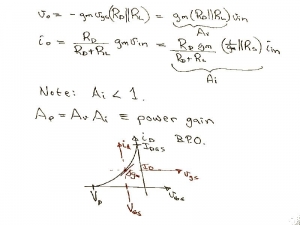 v_o = -g_m v_gs (R_D || R_L) = g_m (R_D || R_L) v_in
A_v
i_o = R_D / (R_D + R_L) g_m v_in = R_D g_m / (R_D + R_L) (1/g_m || R_S) i_in
A_i
Note: A_i < 1.
A_P = A_v A_i ≡ power gain
i_d i_D B.P.O.
I_DSS
I_D
g_m v_gs
V_P V_GS v_GS